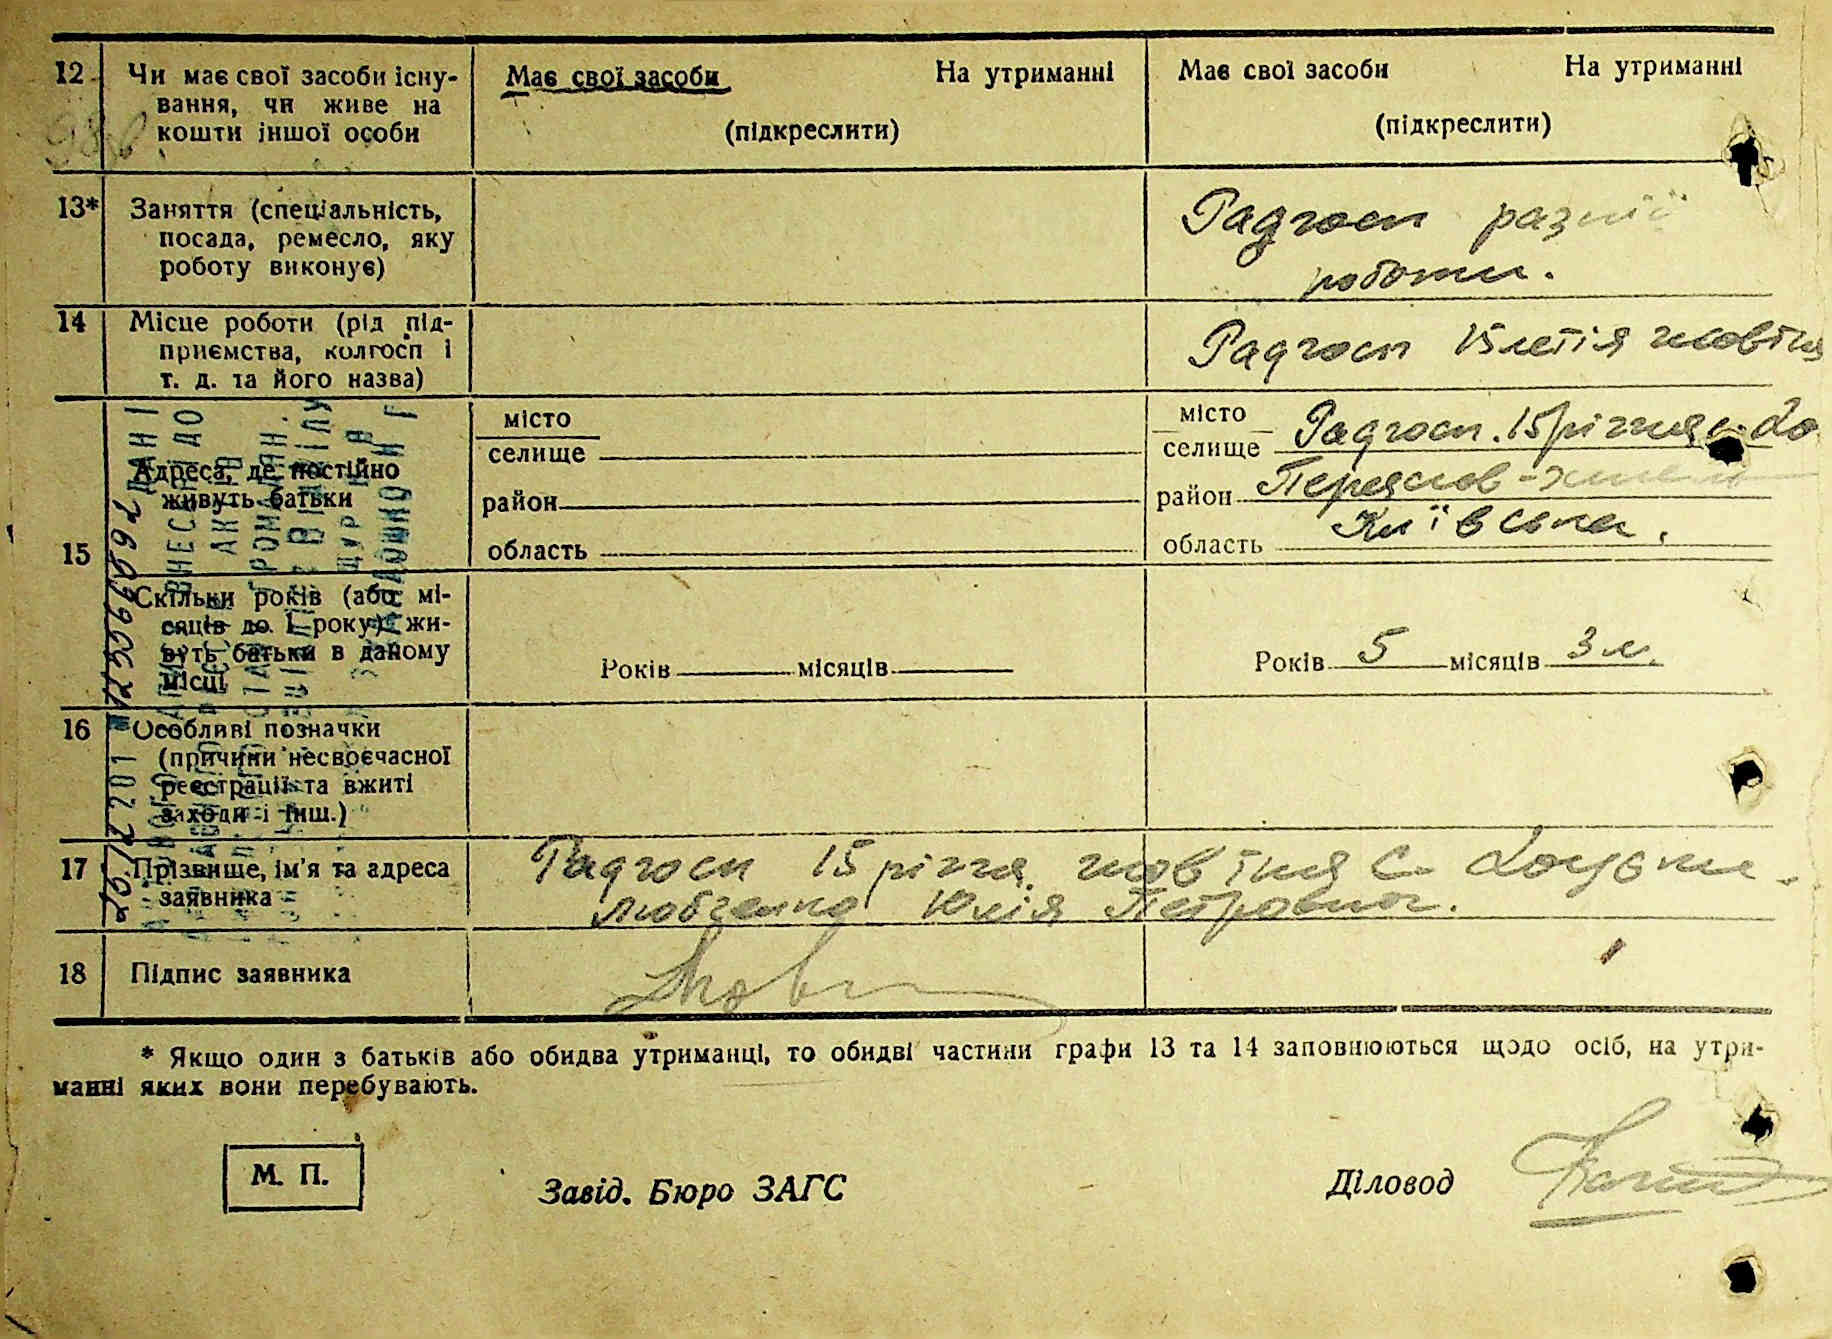 12 Чи має свої засоби існу-
вання, чи живе на
кошти іншої особи
Має свої засоби На утриманні
(підкреслити)
Має свої засоби На утриманні
(підкреслити)
13* Заняття (спеціальність,
посада, ремесло, яку
роботу виконує)
Радгосп разнії
роботи.
14 Місце роботи (рід під-
приємства, колгосп і
т. д. та його назва)
Радгосп 15 летія жовтня
15 Адреса, де постійно
живуть батьки
місто
селище
район
область
місто
селище Радгосп. 15 річчя
район Переяслов-
область Київська.
Скільки років (або мі-
сяців до 1 року) жи-
вуть батьки в даному
місці
Років місяців
Років 5 місяців 3 м.
16 Особливі позначки
(причини несвоєчасної
реєстрації та вжиті
заходи і інш.)
17 Прізвище, ім'я та адреса
заявника
Радгосп 15 річчя жовтня с.
Любченко Юлія Петровна.
18 Підпис заявника
* Якщо один з батьків або обидва утриманці, то обидві частини графи 13 та 14 заповнюються щодо осіб, на утри-
манні яких вони перебувають.
М. П.
Завід. Бюро ЗАГС
Діловод